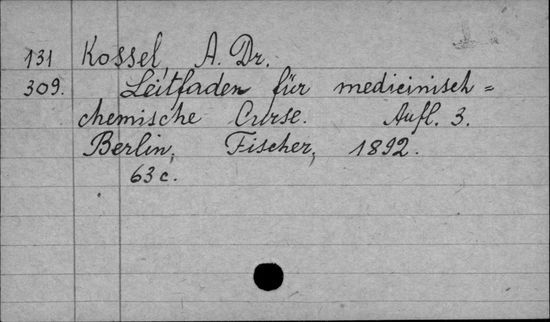 131 Kossel, A. Dr.
309. Leitfaden für medicinisch=
chemische Curse. Aufl. 3.
Berlin, Fischer, 1892.
63 c.